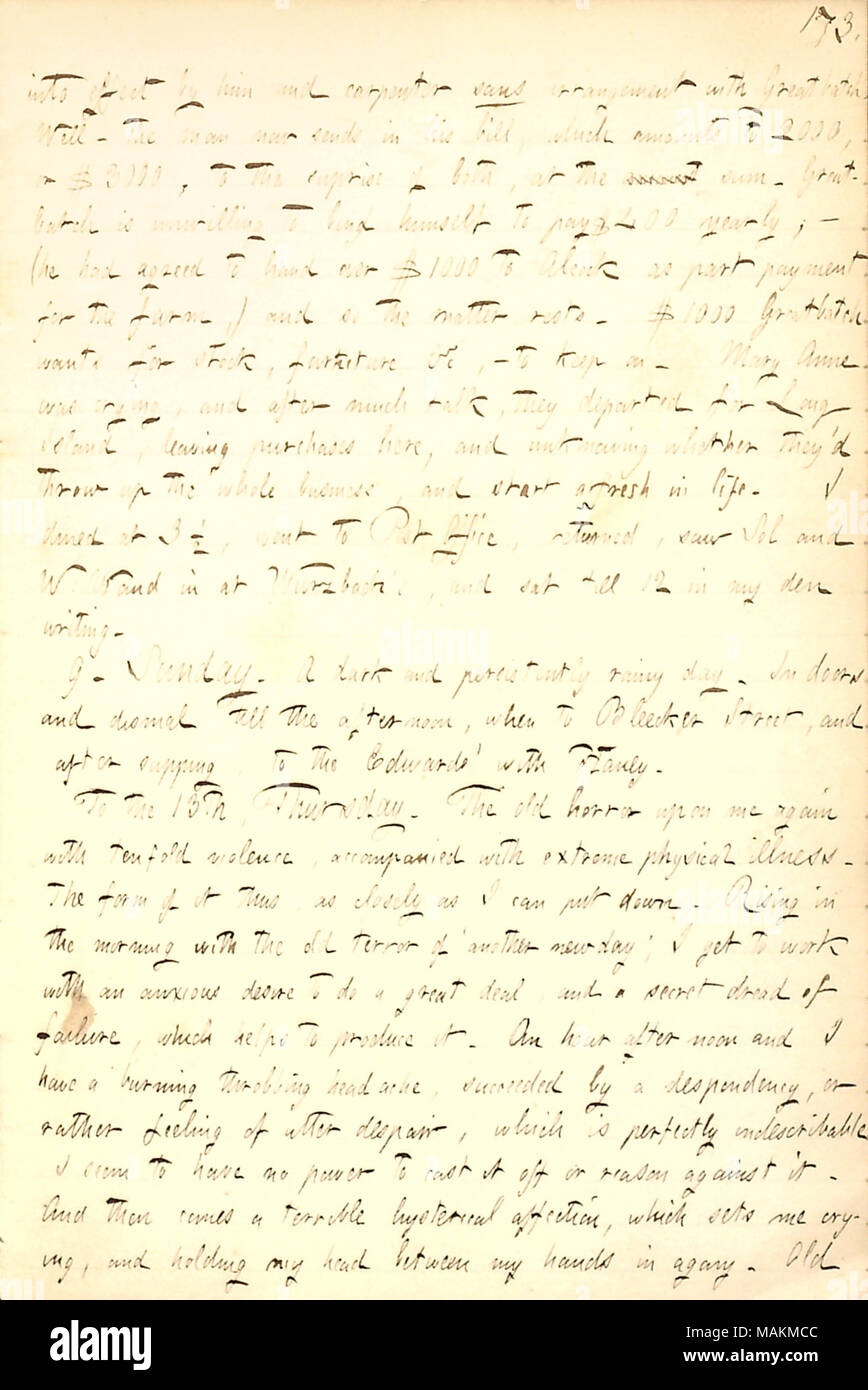 173.
into effect by him and carpenter sans arrangement with Greatbatch.
Well _ the man now sends in his bill, which amounts to 2000,
or $3000, to the suprise of both, at the sum. Great-
batch is unwilling to bind himself to pay $400 yearly; —
(he had agreed to hand over $1000 to Alcock as part payment
for the farm,) and so the matter rests. $1000 Greatbatch
wants for stock, furniture &c, — to keep on. Mary Anne
was crying, and after much talk, they departed for Long
Island leaving purchases here, and unknowing whether they'd
throw up the whole business, and start afresh in life. I
dined at 3 ½, went to Post Office, returned, saw Sol and
and in at Wurzbach's, and sat till 12 in my den
writing.
9. Sunday. A dark and persistently rainy day. In doors
and dismal till the afternoon, when to Bleecker Street, and
after supping, to the Edwards' with Haney.
To the 13th, Thursday. The old horror upon me again
with tenfold violence, accompanied with extreme physical illness.
The form of it thus, as closely as I can put down. Rising in
the morning with the old terror of 'another new day', I get to work
with an anxious desire to do a great deal, and a secret dread of
failure, which helps to produce it. An hour after noon and I
have a burning throbbing headache, succeeded by a despondency, or
rather feeling of utter despair, which is perfectly indescribable
I seem to have no power to cast it off or reason against it.
And then comes a terrible hysterical affection, which sets me cry-
ing, and holding my head between my hands in agony. Old
alamy
Image ID: MAKMCC
www.alamy.com